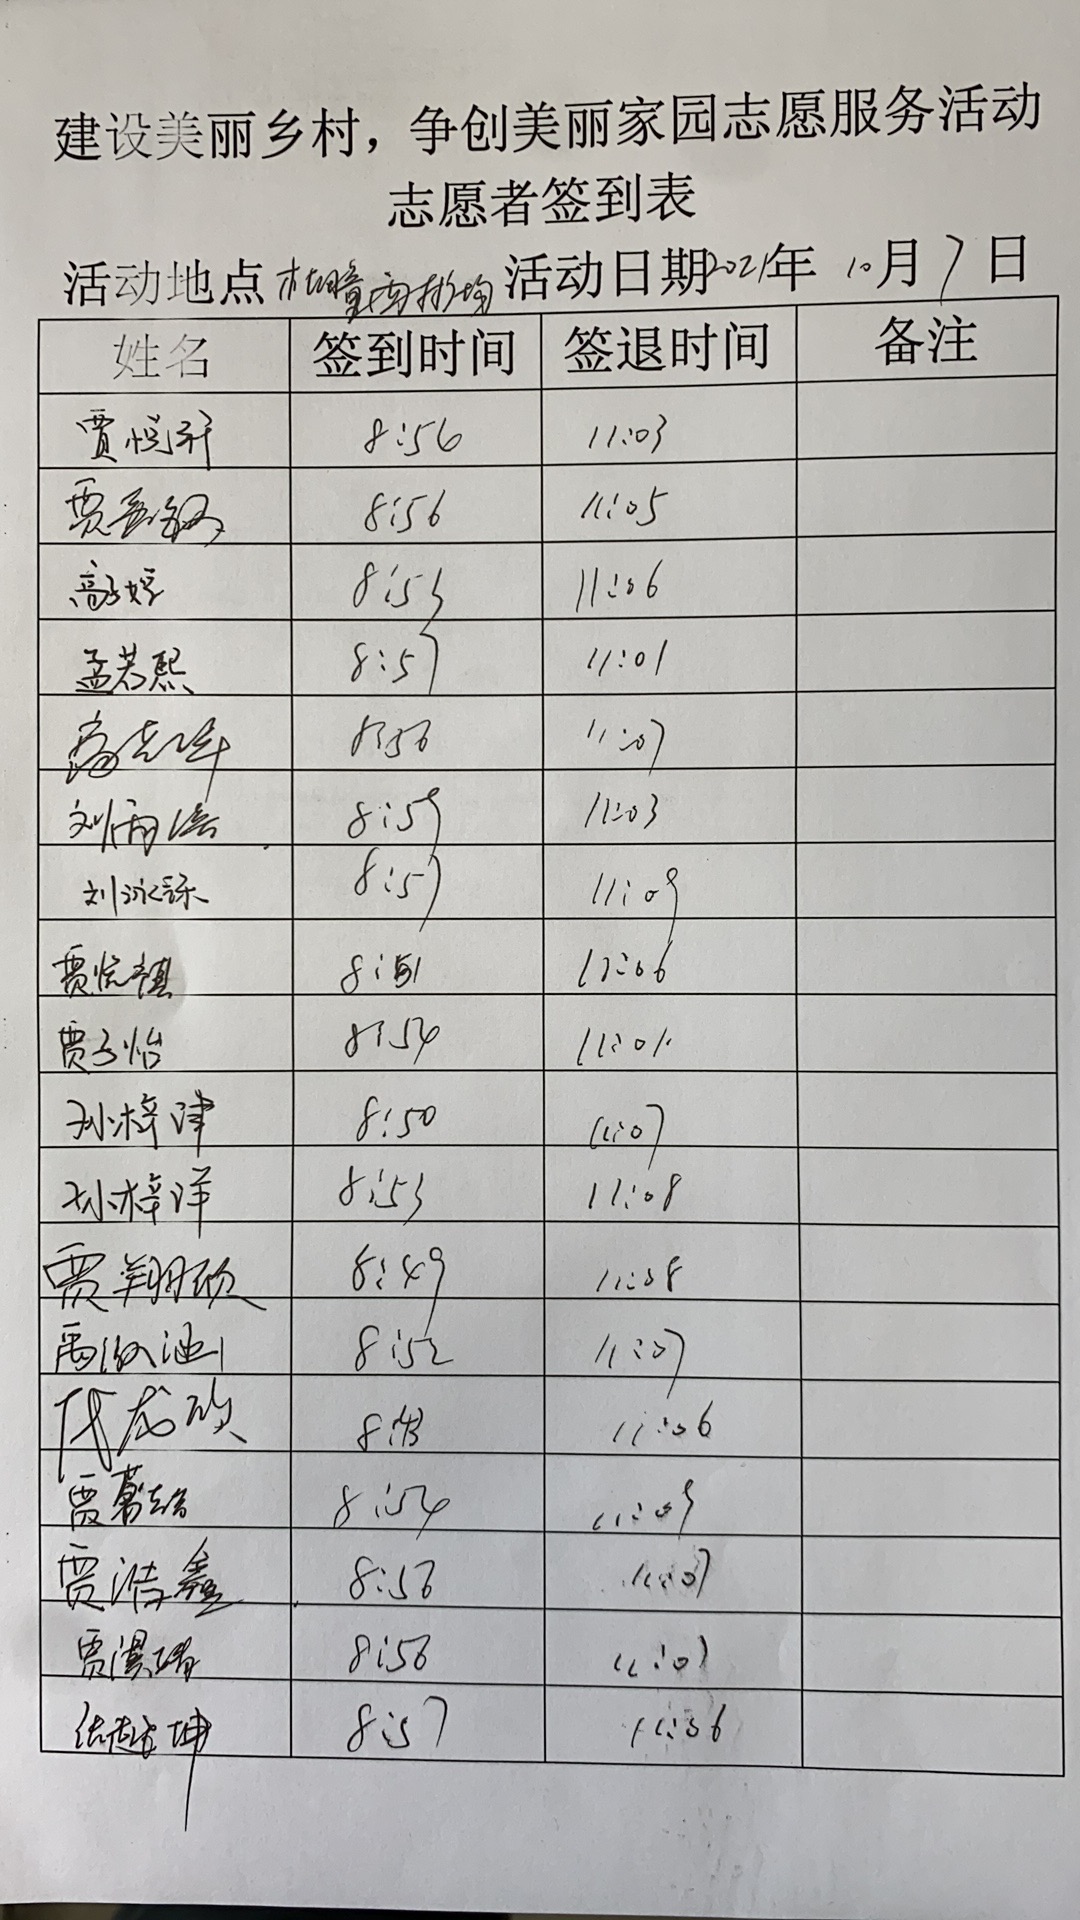 建设美丽乡村，争创美丽家园志愿服务活动
志愿者签到表
活动地点 活动日期2021年 10月7日
姓名 签到时间 签退时间 备注
贾悦 8:56 11:03
贾 8:56 11:05
高子婷 8:53 11:06
孟若熙 8:57 11:01
高志 8:56 11:07
刘雨 8:59 11:03
刘泳 8:57 11:09
贾悦祺 8:51 11:06
贾子怡 8:54 11:01
孙梓津 8:50 11:07
孙梓洋 8:53 11:08
贾翔欣 8:49 11:08
8:52 11:07
代龙硕 8:43 11:06
贾 8:54 11:09
贾浩鑫 8:56 11:07
贾淇 8:56 11:07
坤 8:57 11:06